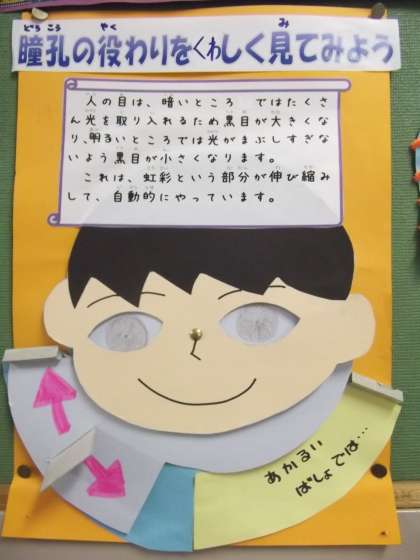 どうこう やく み
瞳孔の役わりをくわしく見てみよう
人の目は、暗いところ ではたくさ
ん光を取り入れるため黒目が大きくな
り、明るいところでは光がまぶしすぎな
いよう黒目が小さくなります。
これは、虹彩という部分が伸び縮み
して、自動的にやっています。
あかるい
ばしょでは…